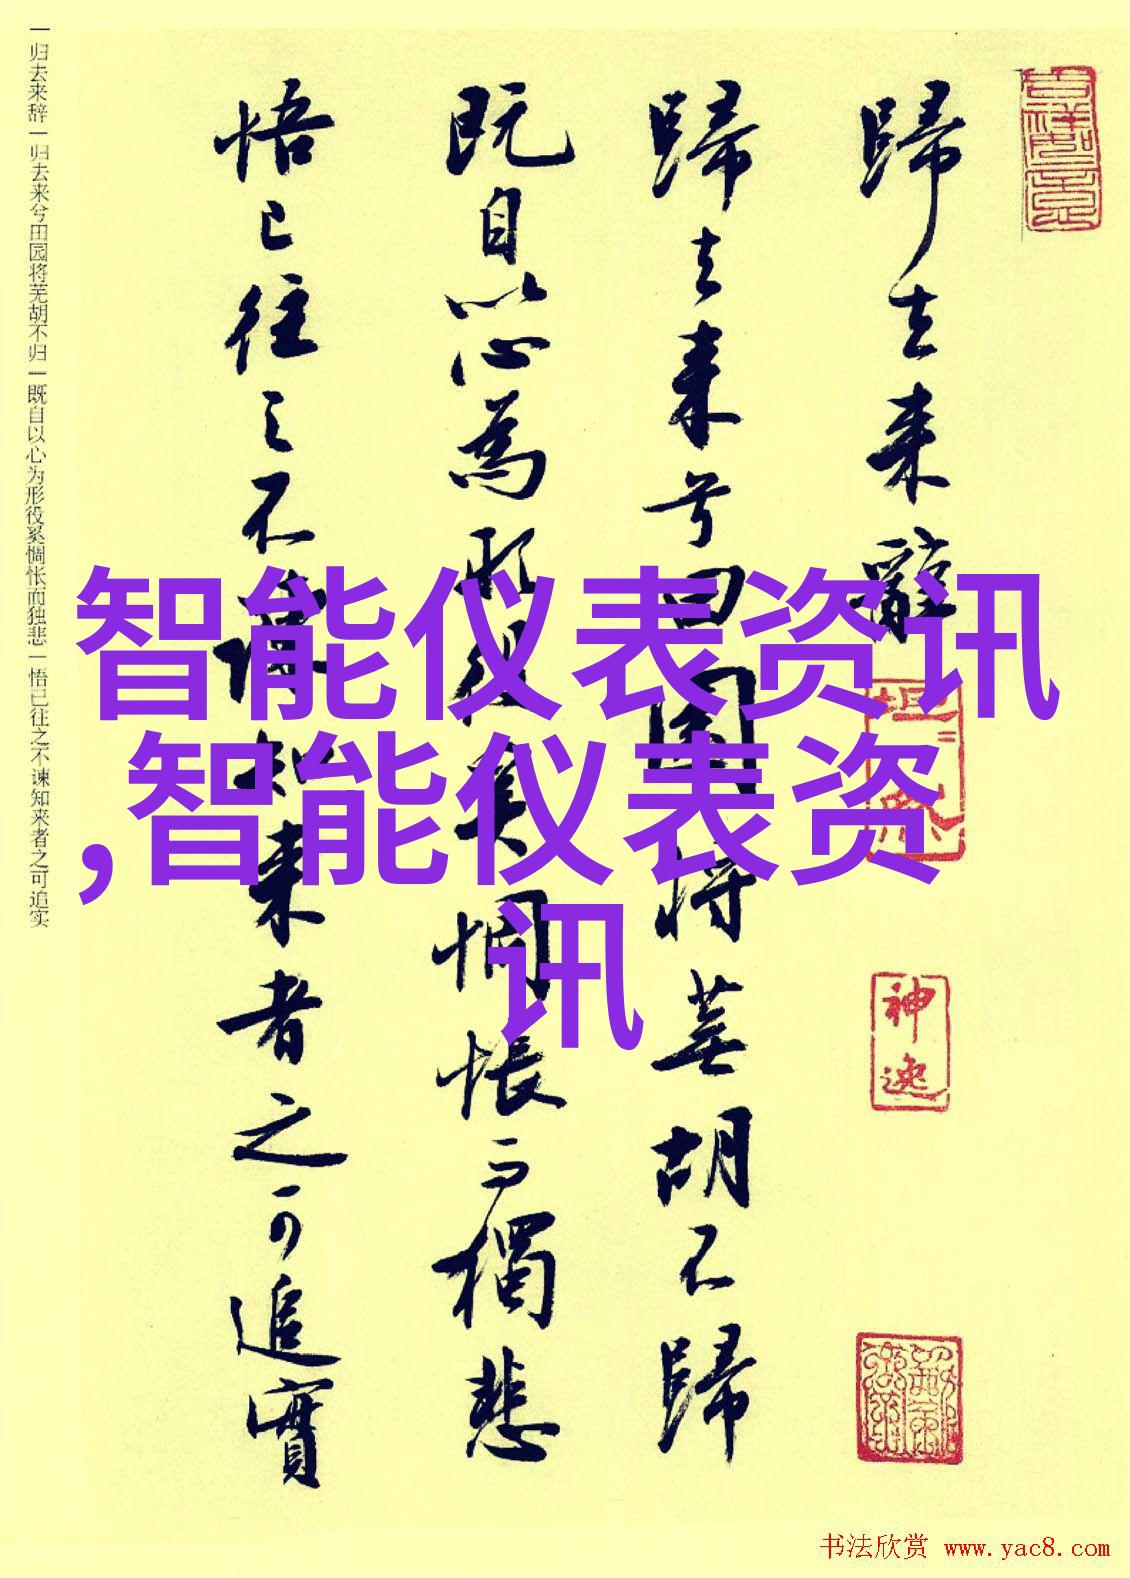 歸去来辭
歸去来兮田園将蕪胡不歸
既自以心為形役奚惆悵而獨悲
悟已往之不諫知来者之可追實
神逸
一归去来辞一归去来兮田园将芜胡不归一既自以心为形役奚惆怅而独悲一悟已往之不谏知来者之可追实
智能仪表资讯
,智能仪表资
讯
书法欣赏 www.yac8.com